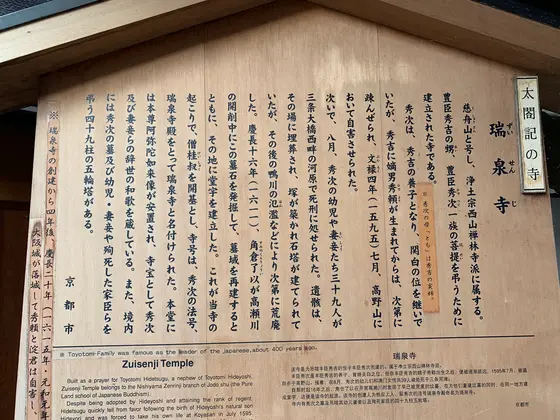 太閤記の寺
瑞泉寺
ずいせんじ
慈舟山と号し、浄土宗西山禅林寺派に属する。
豊臣秀吉の甥、豊臣秀次一族の菩提を弔うために
建立された寺である。
※秀次の母「とも」は秀吉の実姉。
秀次は、秀吉の養子となり、関白の位を継いで
いたが、秀吉に嫡男秀頼が生まれてからは、次第に
疎んぜられ、文禄四年(一五九五)七月、高野山に
おいて自害させられた。
次いで、八月、秀次の幼児や妻妾たち三十九人が
三条大橋西畔の河原で死刑に処せられた。遺骸は、
その場に埋葬され、塚が築かれ石塔が建てられて
いたが、その後の鴨川の氾濫などにより次第に荒廃
した。慶長十六年(一六一一)、角倉了以が高瀬川
の開削中にこの墓石を発掘して、墓域を再建すると
ともに、その地に堂宇を建立した。これが当寺の
起こりで、僧桂叔を開基とし、寺号は、秀次の法号、
瑞泉寺殿をとって瑞泉寺と名付けられた。本堂に
は本尊阿弥陀如来像が安置され、寺宝として秀次
及び妻妾らの辞世の和歌を蔵している。また、境内
には秀次の墓及び幼児・妻妾や殉死した家臣らを
弔う四十九柱の五輪塔がある。
京都市
※瑞泉寺の創建から四年後、慶長二十年(一六一五・元和
大阪城が落城して秀頼と淀君は自害し
※Toyotomi Family was famous as the leader of the Japanese, about 400 years ago.
Zuisenji Temple
Built as a prayer for Toyotomi Hidetsugu, a nephew of Toyotomi Hideyoshi,
Zuisenji Temple belongs to the Nishiyama Zenrinji branch of Jodo shu (the Pure
Land school of Japanese Buddhism).
Despite being adopted by Hideyoshi and attaining the rank of regent,
Hidetsugu quickly fell from favor following the birth of Hideyoshi's natural son
Hideyori and was forced to take his own life at Koyasan in July 1595.
瑞泉寺